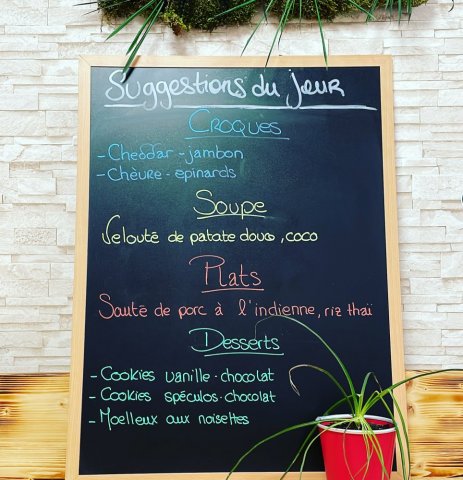 Suggestions du jour
CROQUES
- Cheddar - jambon
- Chèvre - epinards
Soupe
Velouté de patate douce, coco
Plats
Sauté de porc à l'indienne, riz thaï
Desserts
- Cookies vanille - chocolat
- Cookies spéculos - chocolat
- Moelleux aux noisettes